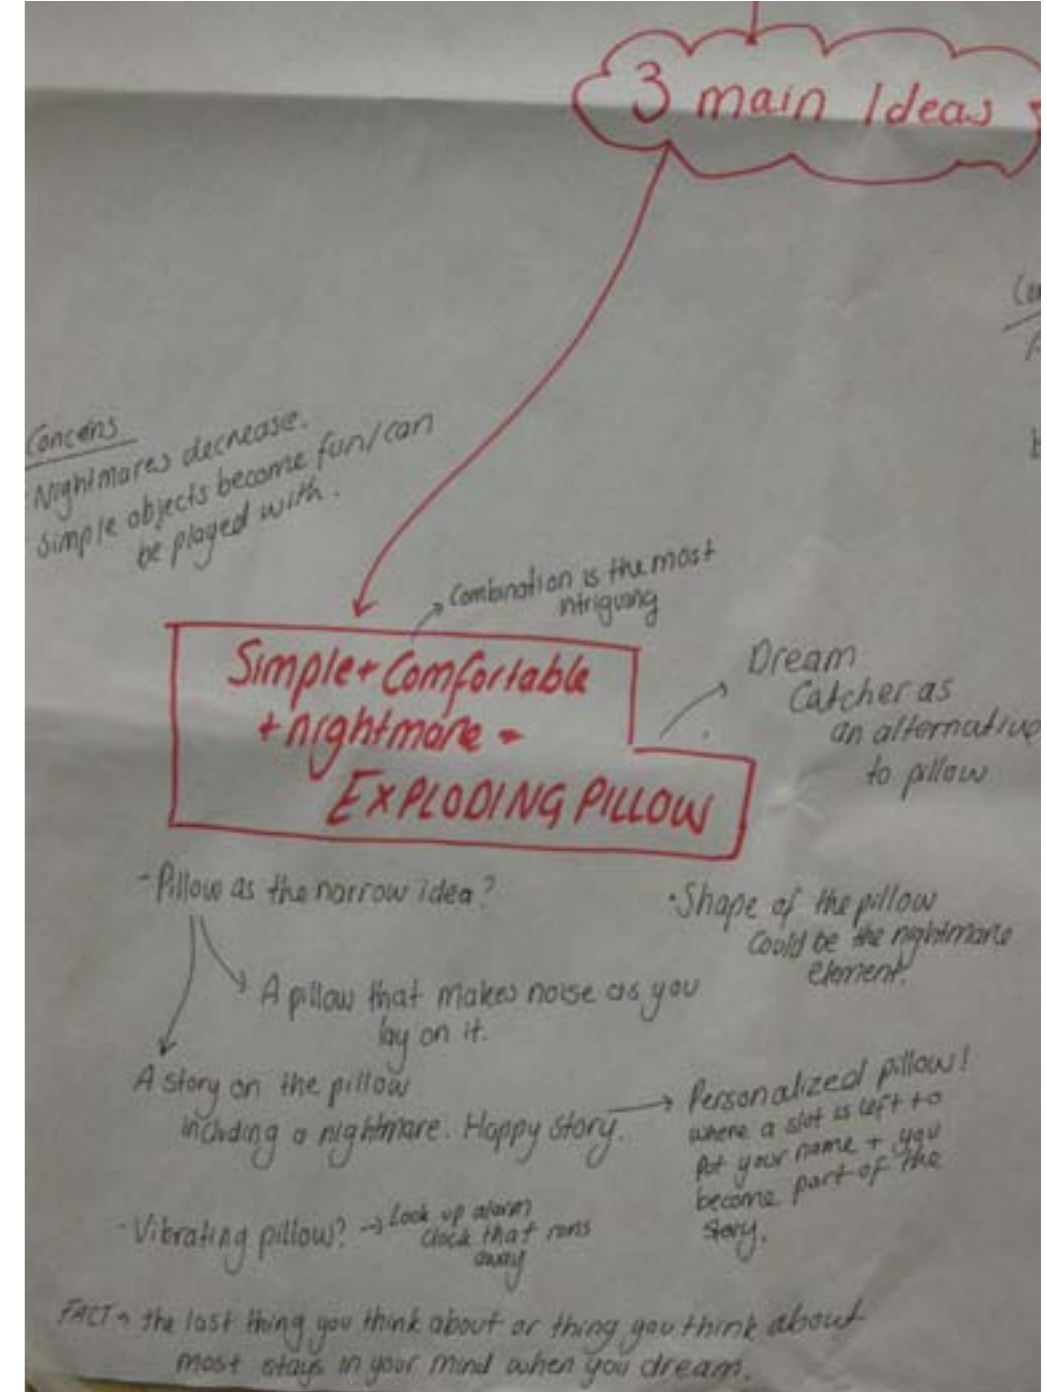 3 main Ideas
Concerns
Nightmares decrease.
simple objects become fun/can
be played with.
Combination is the most
intriguing
Simple + Comfortable
+ nightmare =
EXPLODING PILLOW
Dream
Catcher as
an alternative
to pillow
- Pillow as the narrow idea?
• Shape of the pillow
could be the nightmare
element.
A pillow that makes noise as you
lay on it.
A story on the pillow
including a nightmare. Happy story.
Personalized pillow!
where a slot is left to
put your name + you
become part of the
story.
- Vibrating pillow? → Look up alarm
clock that runs
away
FACT → the last thing you think about or thing you think about
most stays in your mind when you dream.